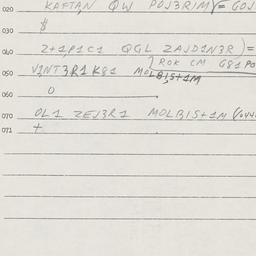 020 KAFTAN QW POJ3RIM = GOJ
030 $
040 2+1,P1C1 QGL ZAJD1N3R) =
ROK CM G81 PO
050 V1NT3R1 K81 MOLB1S+1M
060 0
070 OL1 ZEJ3R1 MOLB1S+1M
071 +